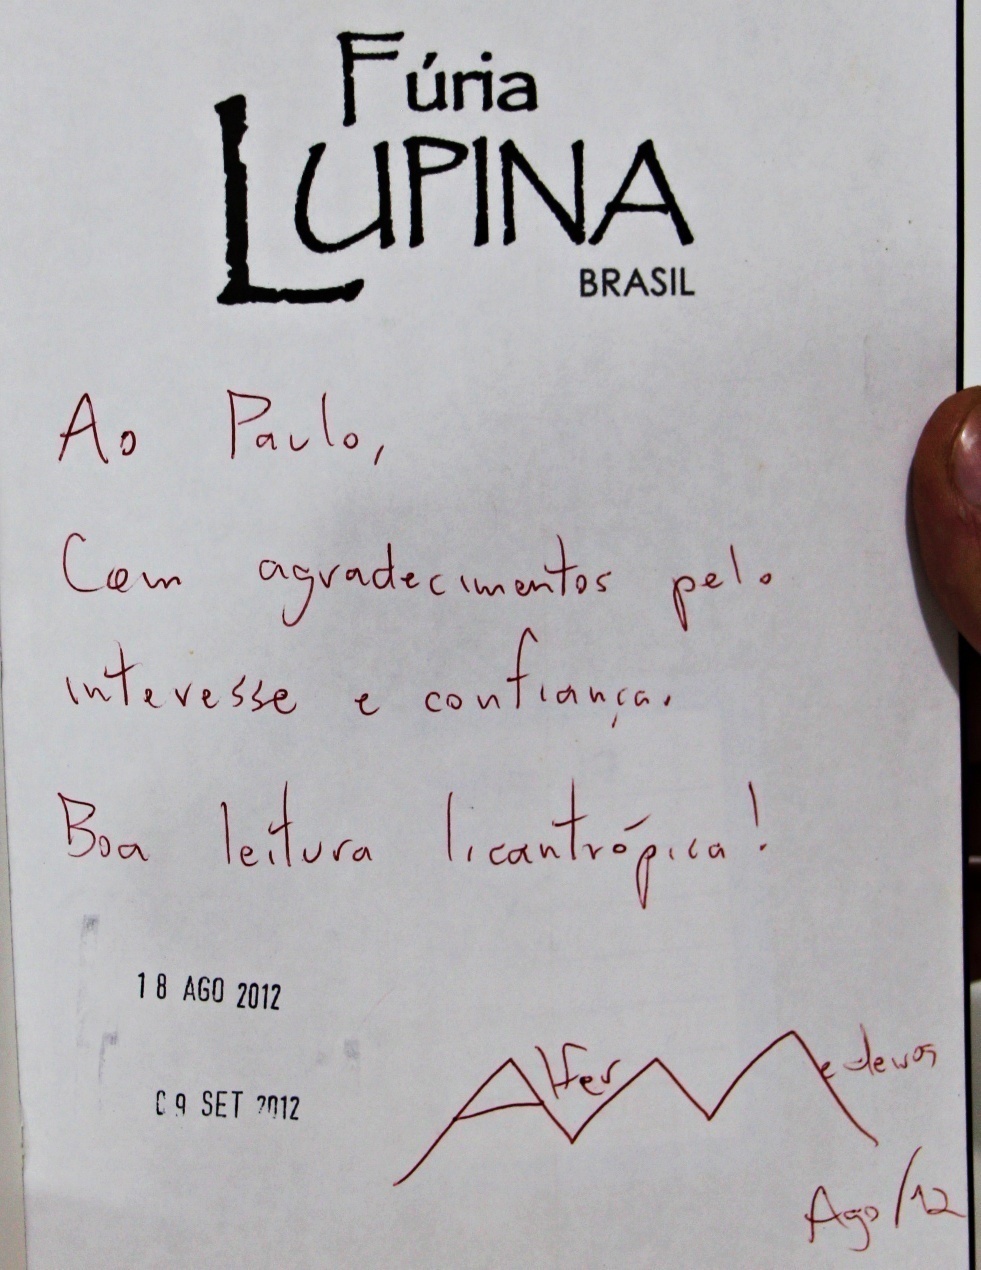 Fúria
LUPINA
BRASIL
Ao Paulo,
Com agradecimentos pelo
interesse e confiança.
Boa leitura licantrópica!
18 AGO 2012
09 SET 2012
Alfer Medeiros
Ago/12